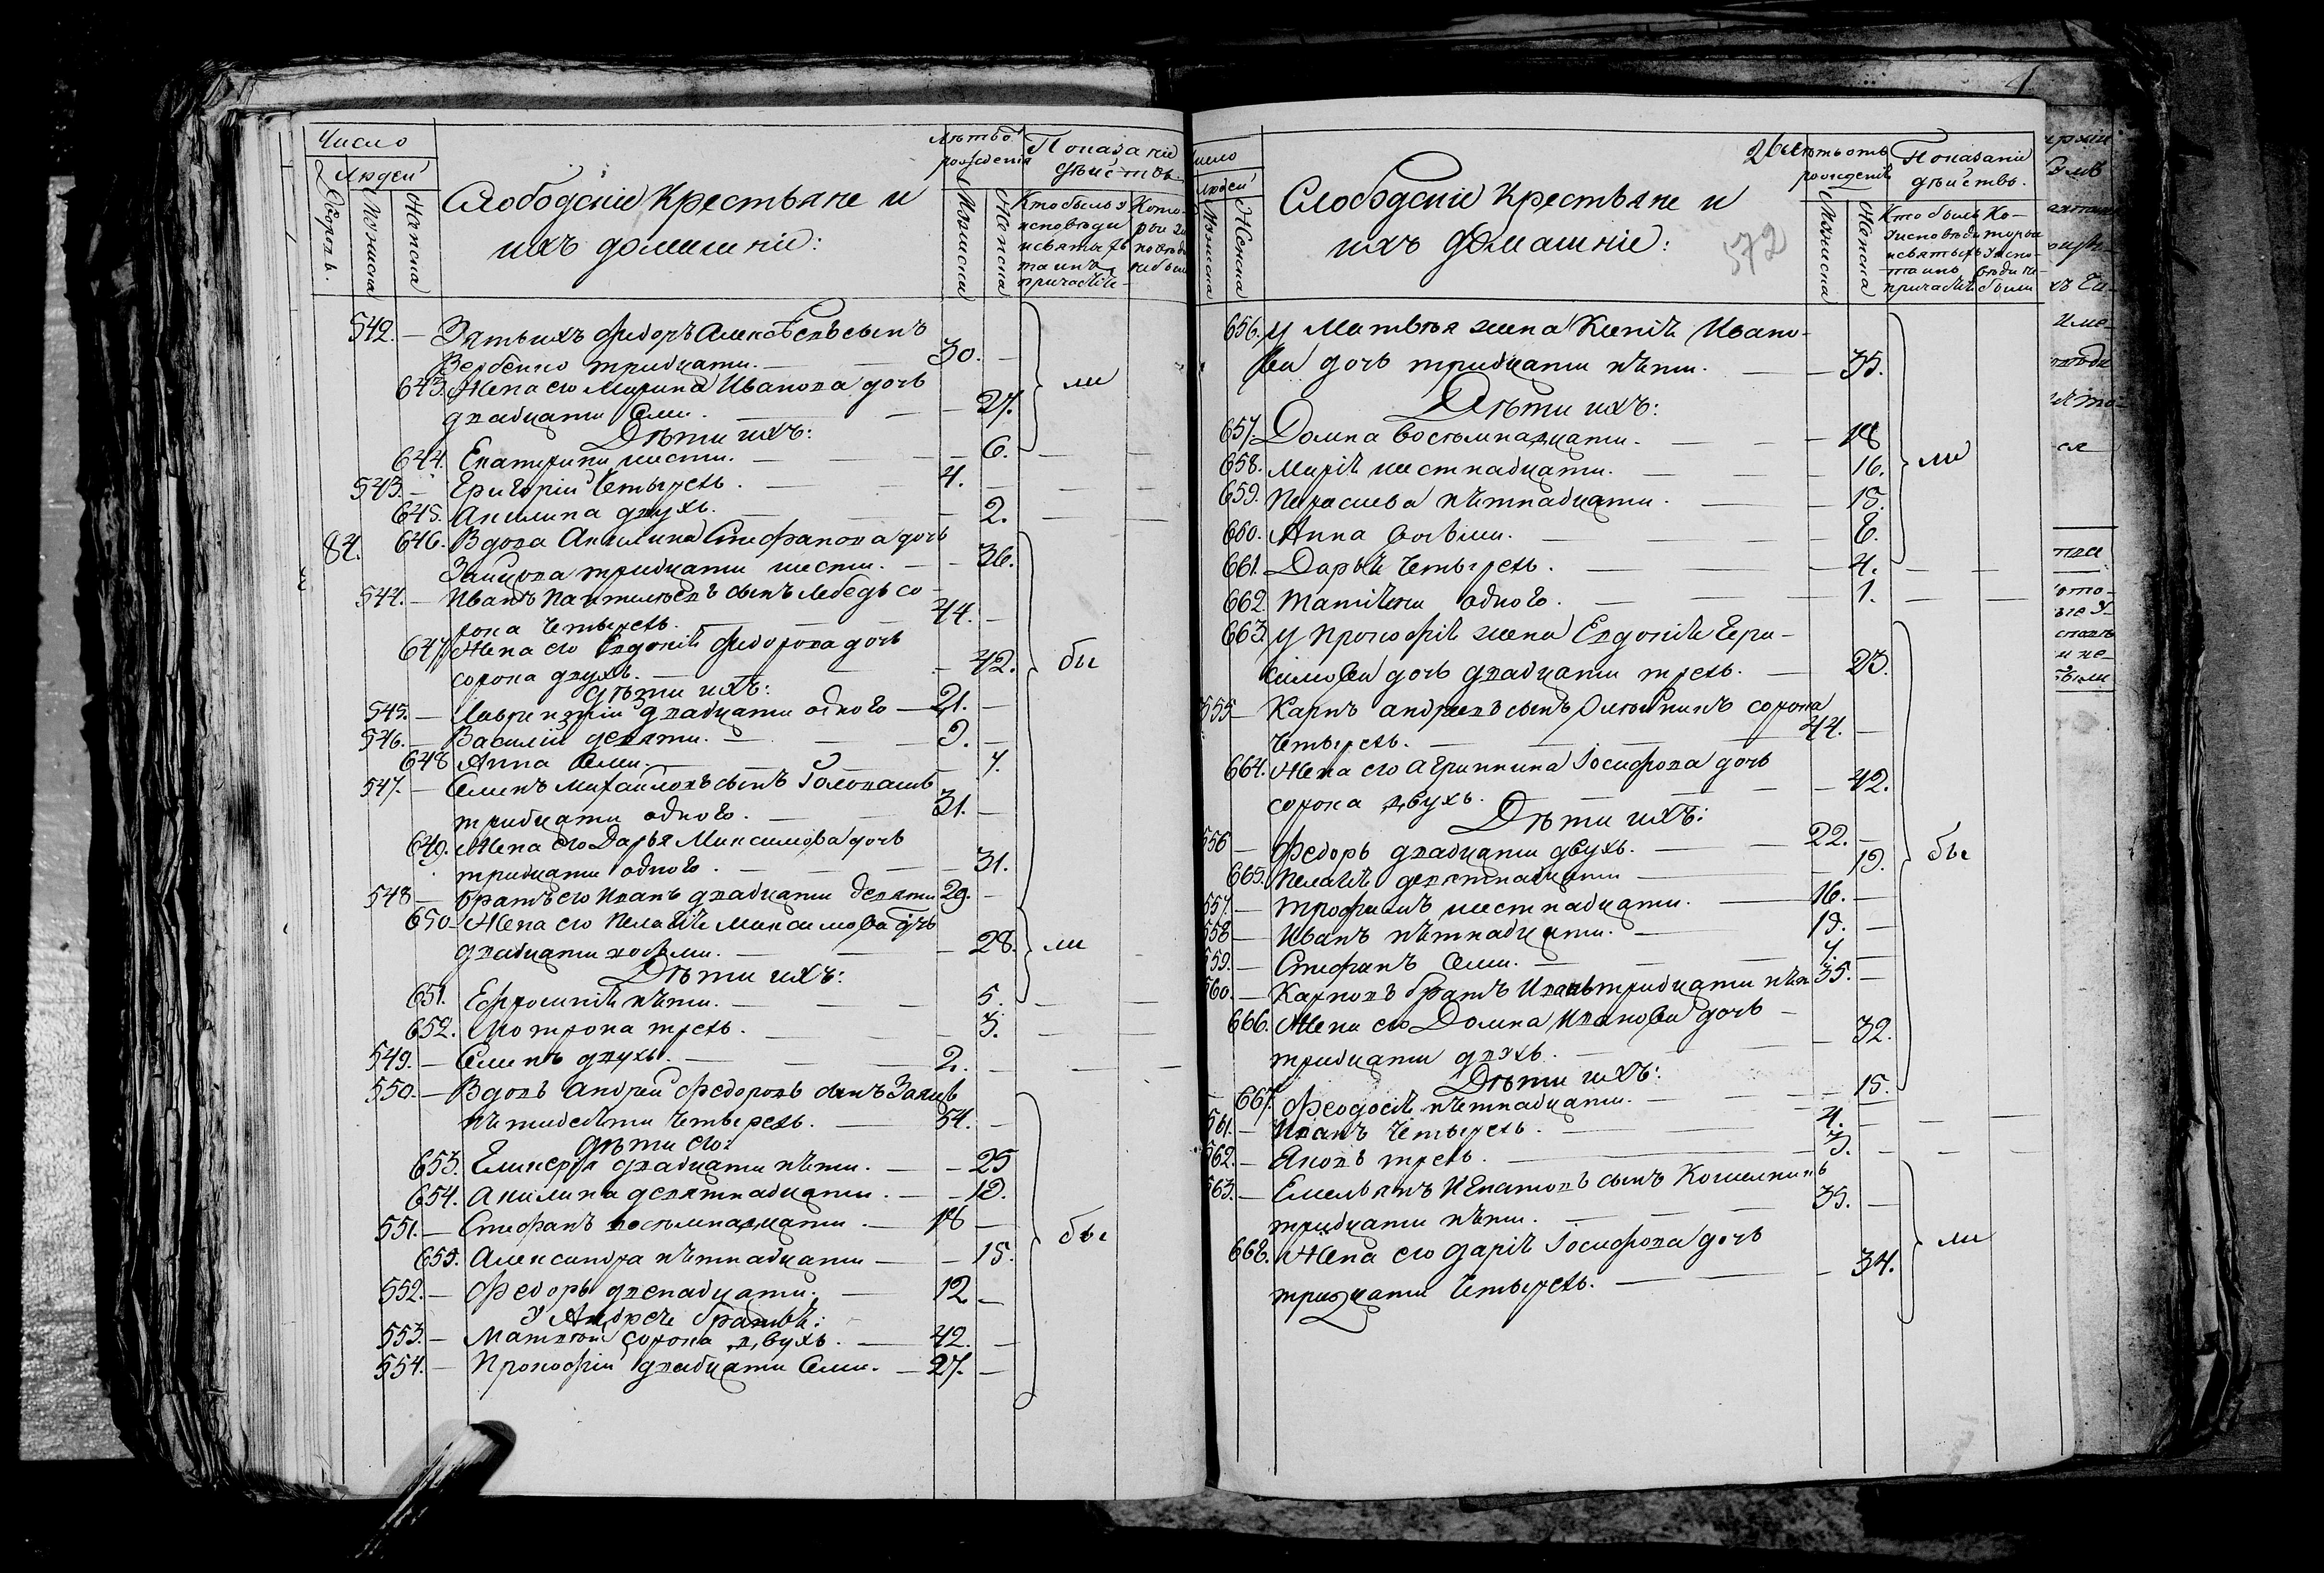 Число
Людей
Дворовъ.
Мужеска
Женска
Слободскіе Крестьяне и
ихъ домашніе:
Лѣтъ о
рожденія
Мужеска
Женска
Показаніе
дѣйствъ.
Кто былъ у
исповѣди
и святыхъ
таинъ
причастія
542. — Зять ихъ Федоръ сынъ
Вербенко тридцати. — 30. —
643. Жена его Марина Иванова дочь
двадцати семи. — — 27.
ли
Дѣти ихъ:
644. Екатерина шести. — — 6. — —
543. — Григорій четырехъ. — 4. — — —
645. Акилина двухъ. — — 2. — —
84. 646. Вдова Акилина Стефанова дочь
Зайцова тридцати шести. — — 36.
544. — Иванъ Пантелѣевъ сынъ Лебедь со
рока четырехъ. — 44. —
647. Жена его Евдокія Федорова дочь
сорока двухъ. — — 42.
бы
дѣти ихъ:
545. — Лаврентій двадцати одного — 21. —
546. — Василій девяти. — — 9. —
648 Анна семи. — — 7.
547. — Семенъ Михайловъ сынъ
тридцати одного. — — 31. —
649. Жена его Дарья Максимова дочь
тридцати одного. — — — 31.
548 — братъ его Иванъ двадцати девяти 29. —
650 Жена его Пелагія Максимова дочь
двадцати восьми. — — 28.
ли
Дѣти ихъ:
651. Ефросинія пяти. — — 5. — —
652. Мотрона трехъ. — — 3. — —
549. — Семенъ двухъ. — — 2. — — —
550. — Вдовъ Андрей Федоровъ сынъ
пятидесяти четырехъ. — 54. —
дѣти его:
653. Гликерія двадцати пяти. — — 25
654. Акилина девятнадцати. — — 19.
551. — Стефанъ восемнадцати. — 18 —
бы
655. Александра пятнадцати — — 15.
552. — Федоръ двенадцати. — 12 —
У Андрея братья:
553. — Матвѣй сорока двухъ. — 42. —
554. — Прокофій двадцати семи. — 27. —
Число
Людей
Мужеска
Женска
Слободскіе Крестьяне и
ихъ домашніе:
572
Лѣтъ отъ
рожденія
Мужеска
Женска
Показаніе
дѣйствъ.
Кто былъ
у исповѣди
и святыхъ
таинъ
причастія
Ко-
торые
у испо-
вѣди не
были
656. У Матвѣя жена Ксенія Ивано-
ва дочь тридцати пяти. — — 35.
Дѣти ихъ:
657. Домна восемнадцати. — — — 18
658. Марія шестнадцати. — — 16.
ли
659. Параскева пятнадцати. — — 15.
660. Анна восьми. — — — 8.
661. Дарья четырехъ. — — — 4. — —
662. Татіяна одного. — — — 1. — —
663. У Прокофія жена Евдокія Гера-
симова дочь двадцати трехъ. — 23.
555 — Карпъ Андреевъ сынъ сорока
четырехъ. — — — 44. —
664. Жена его Агрипина Іосифова дочь
сорока двухъ. — — — 42.
Дѣти ихъ:
556 — Федоръ двадцати двухъ. — — 22. —
бы
665. Пелагія девятнадцати — — 19.
557. — Трофимъ шестнадцати. — 16. —
558 — Иванъ пятнадцати. — — 15. —
559. — Стефанъ семи. — — — 7. —
560. — Карповъ братъ Иванъ тридцати пяти 35. —
666. Жена его Домна Иванова дочь —
тридцати двухъ. — — 32.
Дѣти ихъ:
667. Феодосія пятнадцати. — — — 15.
561. — Иванъ четырехъ. — — 4. — — —
562. — Яковъ трехъ. — 3. — — —
563. — Емельянъ Игнатовъ сынъ
тридцати пяти. — — — 35. —
668. Жена его Дарія Іосифова дочь
ли
тридцати четырехъ. — — — 34.